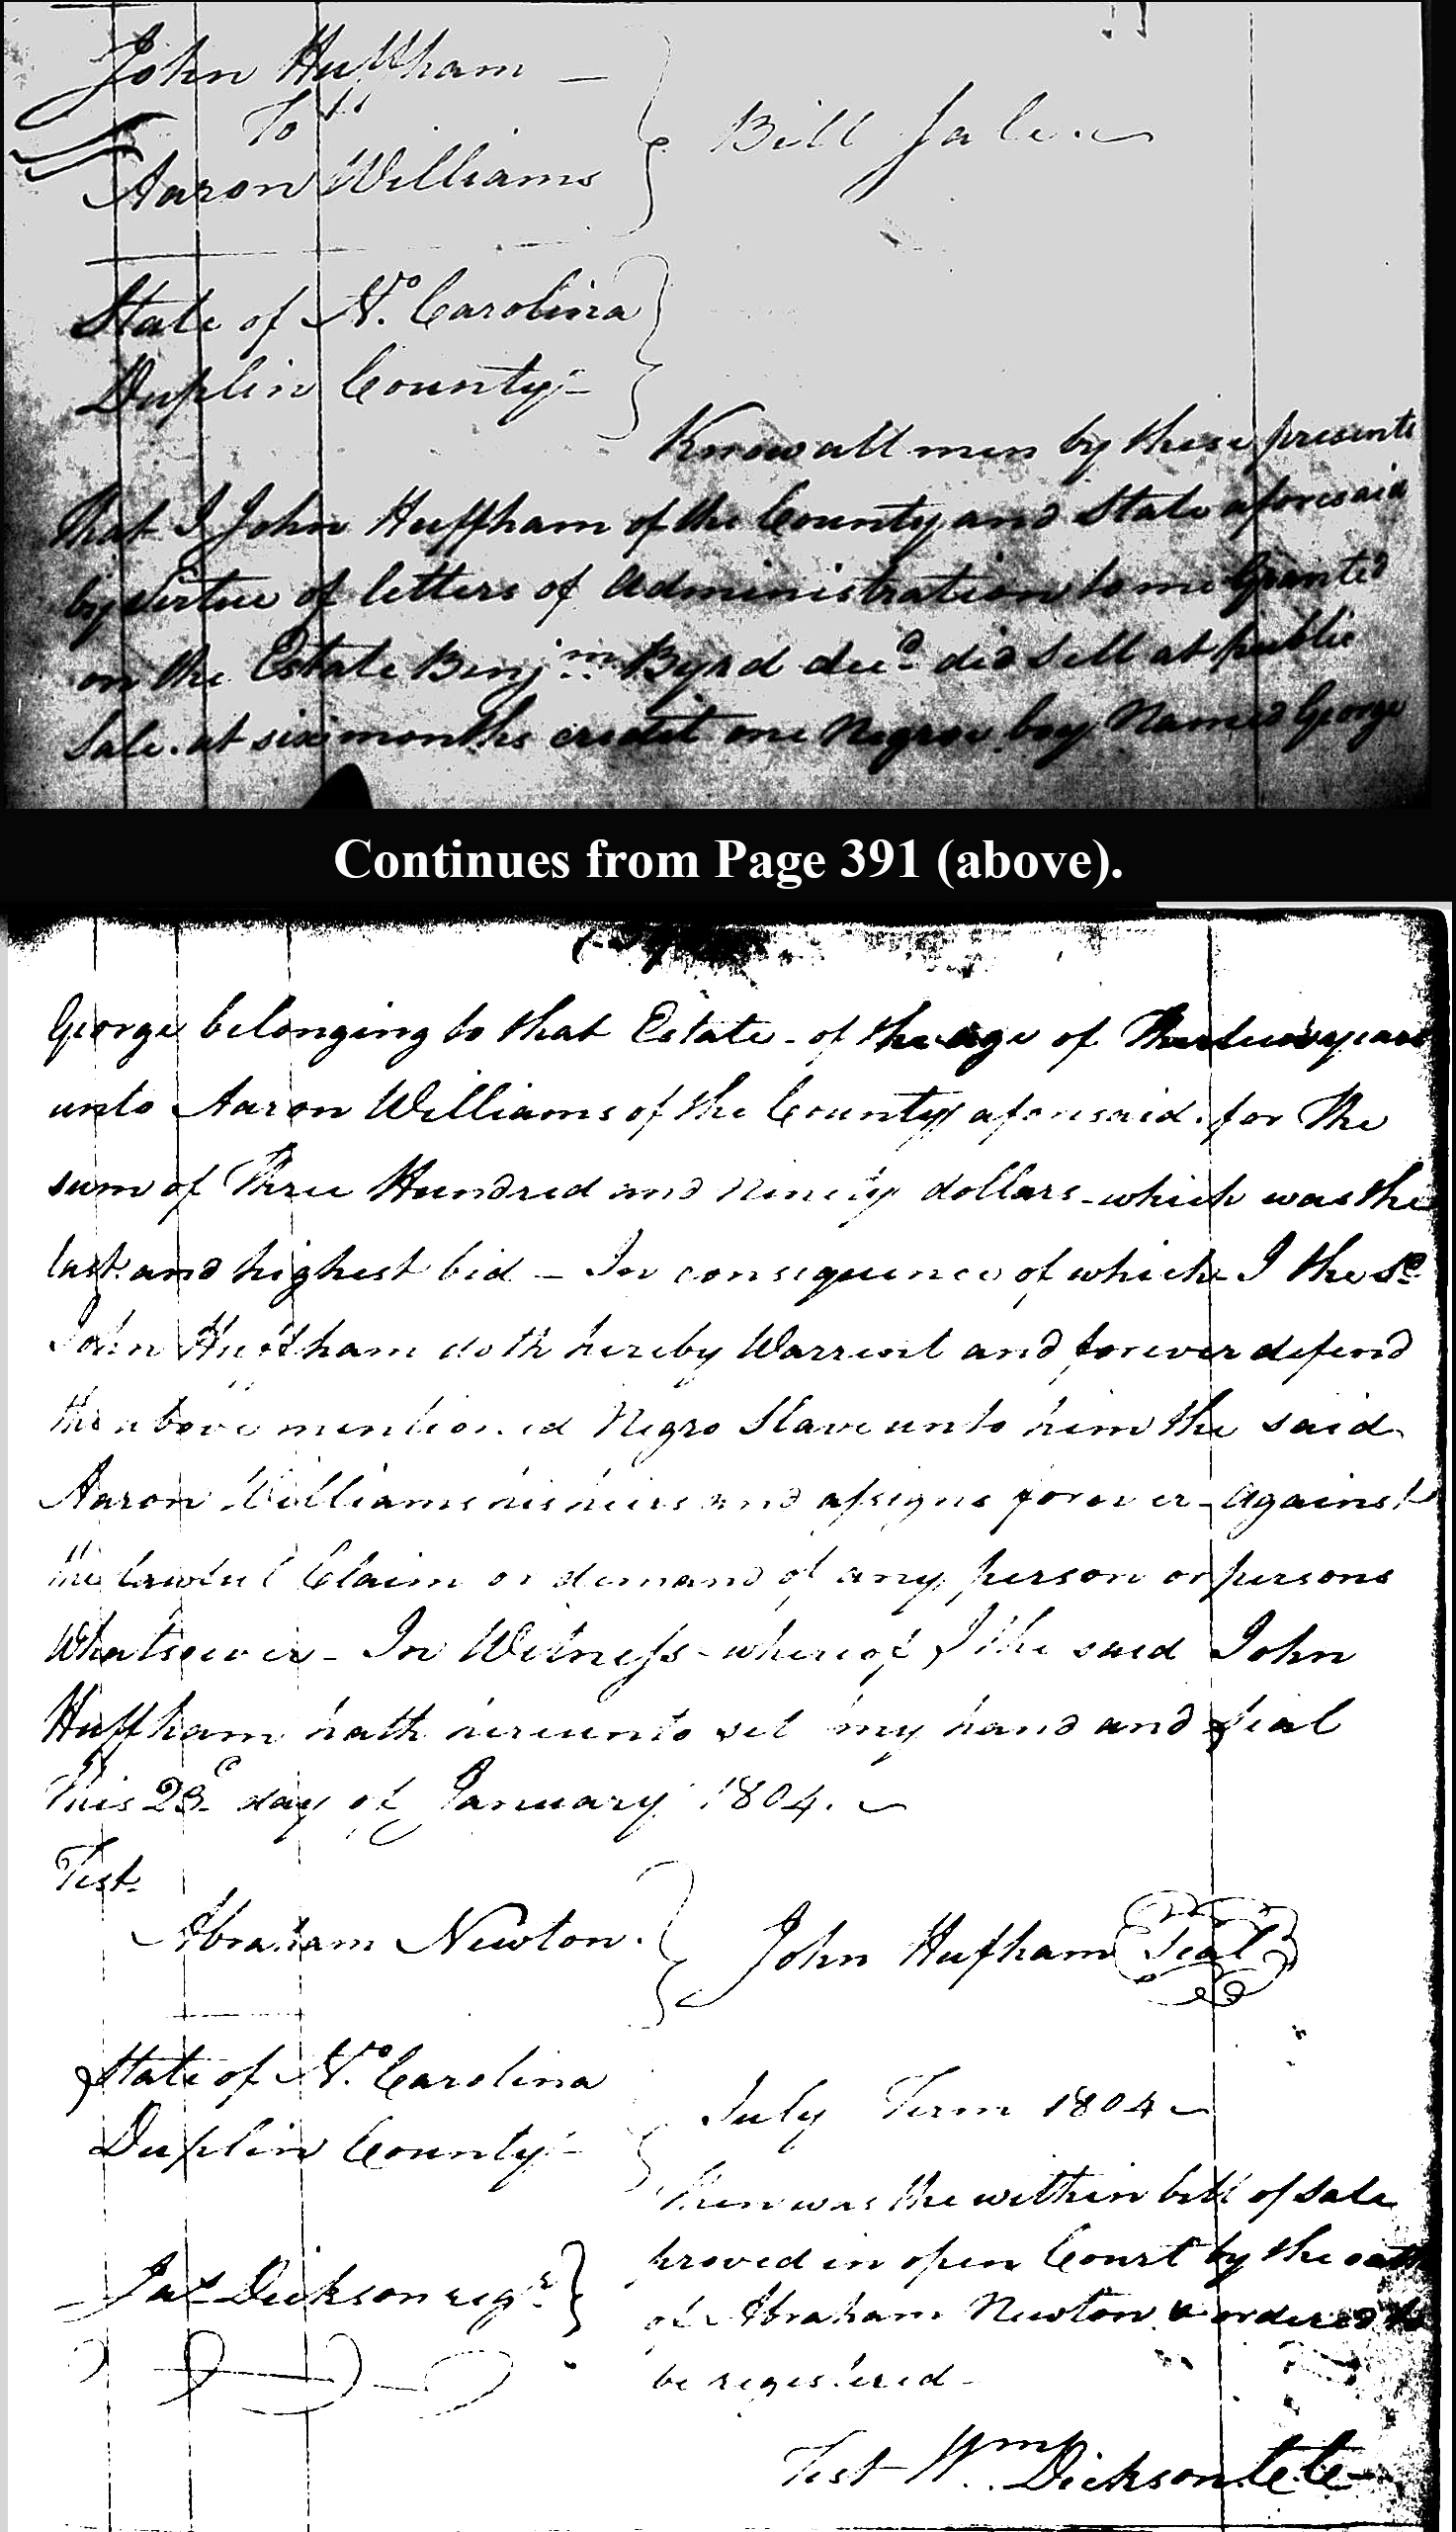 John Huffham —
To
Aaron Williams
Bill Sale
State of No. Carolina
Duplin County
Know all men by these presents
that I John Huffham of the County and State aforesaid
by Virtue of letters of Administration to me Granted
on the Estate Benjm. Byrd decd. did Sell at public
Sale at six months credit one Negroe boy Named George
Continues from Page 391 (above).
George belonging to that Estate - of the age of years
unto Aaron Williams of the County aforesaid for the
sum of Three Hundred and Ninety dollars - which was the
last and highest bid — In consequence of which I the sd.
John Huffham doth hereby Warrent and forever defend
the above mentioned Negro Slave unto him the said
Aaron Williams his heirs and assigns forever - Against
the lawful Claim or demand of any person or persons
Whatsoever - In Witness - whereof I the said John
Huffham hath hereunto set my hand and Seal
this 23d day of January 1804.
Test.
Abraham Newton.
John Hufham Seal
State of No. Carolina
Duplin County
July Term 1804
Then was the within bill of Sale
proved in open Court by the oath
of Abraham Newton & ordered to
be registered -
Jas. Dickson regr.
Test Wm. Dickson